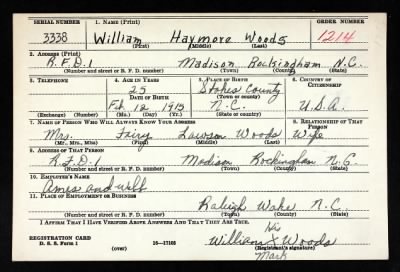 SERIAL NUMBER 1. NAME (Print) ORDER NUMBER
3338 William Haymore Woods 1214
(First) (Middle) (Last)
2. ADDRESS (Print)
R.F.D.1 Madison Rockingham N.C.
(Number and street or R. F. D. number) (Town) (County) (State)
3. TELEPHONE 4. AGE IN YEARS 5. PLACE OF BIRTH 6. COUNTRY OF CITIZENSHIP
25 Stokes County
DATE OF BIRTH (Town or county)
Feb 12 1915 N.C. U.S.A.
(Exchange) (Number) (Mo.) (Day) (Yr.) (State or country)
7. NAME OF PERSON WHO WILL ALWAYS KNOW YOUR ADDRESS 8. RELATIONSHIP OF THAT PERSON
Mrs. Fairy Lawson Woods Wife
(Mr., Mrs., Miss) (First) (Middle) (Last)
9. ADDRESS OF THAT PERSON
R.F.D.1 Madison Rockingham N.C.
(Number and street or R. F. D. number) (Town) (County) (State)
10. EMPLOYER'S NAME
Ames and Webb
11. PLACE OF EMPLOYMENT OR BUSINESS
Raleigh Wake N.C.
(Number and street or R. F. D. number) (Town) (County) (State)
I AFFIRM THAT I HAVE VERIFIED ABOVE ANSWERS AND THAT THEY ARE TRUE.
His
REGISTRATION CARD William X Woods
D. S. S. Form 1 (over) 16—17105 (Registrant's signature)
Mark